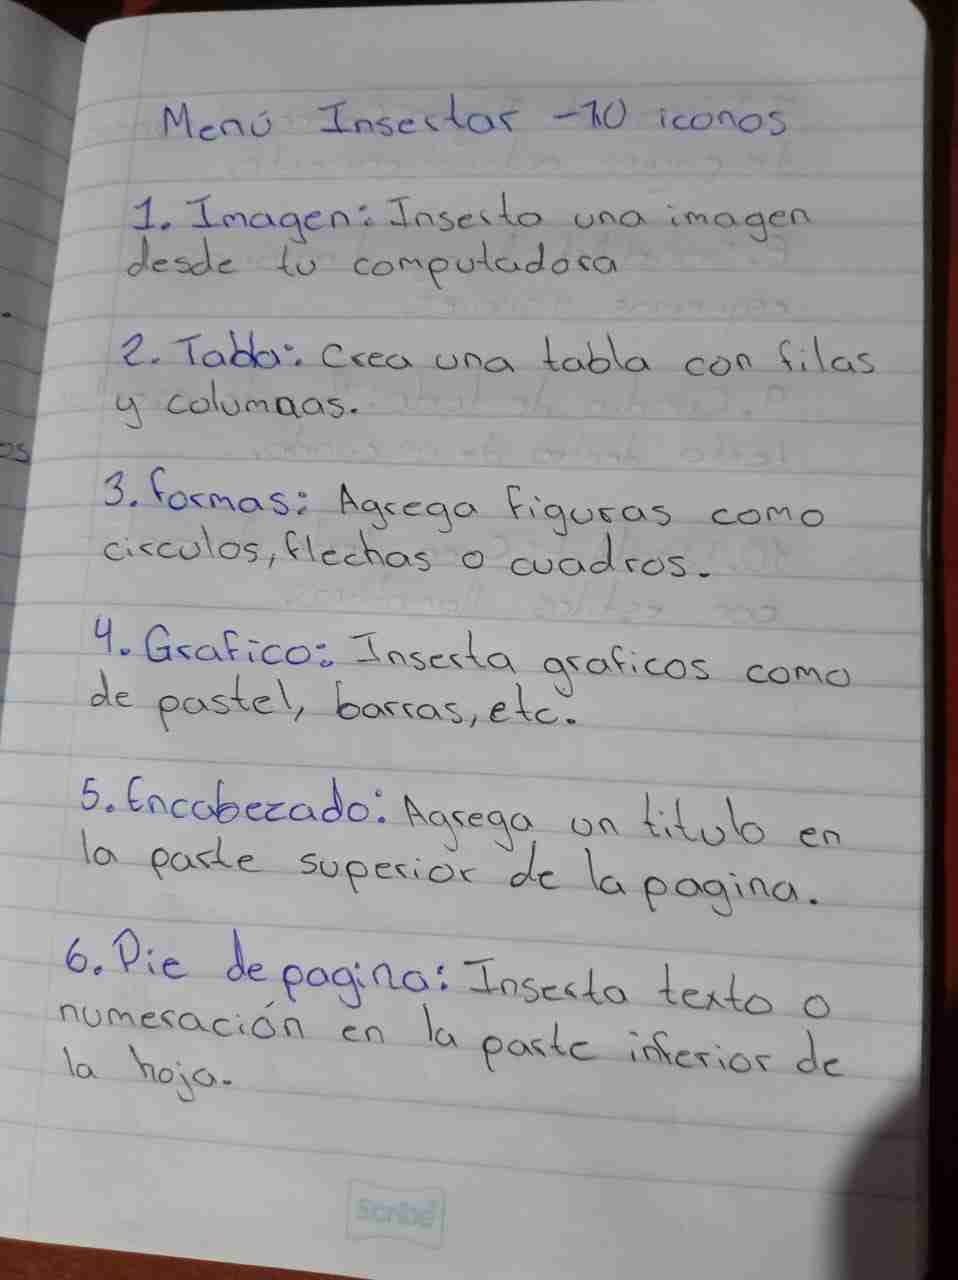 Menú Insertar - 10 iconos
1. Imagen: Inserta una imagen
desde tu computadora
2. Tabla: Crea una tabla con filas
y columnas.
3. formas: Agrega figuras como
circulos, flechas o cuadros.
4. Grafico: Inserta graficos como
de pastel, barras, etc.
5. Encabezado: Agrega un titulo en
la parte superior de la pagina.
6. Pie de pagina: Inserta texto o
numeración en la parte inferior de
la hoja.
os
Scribe